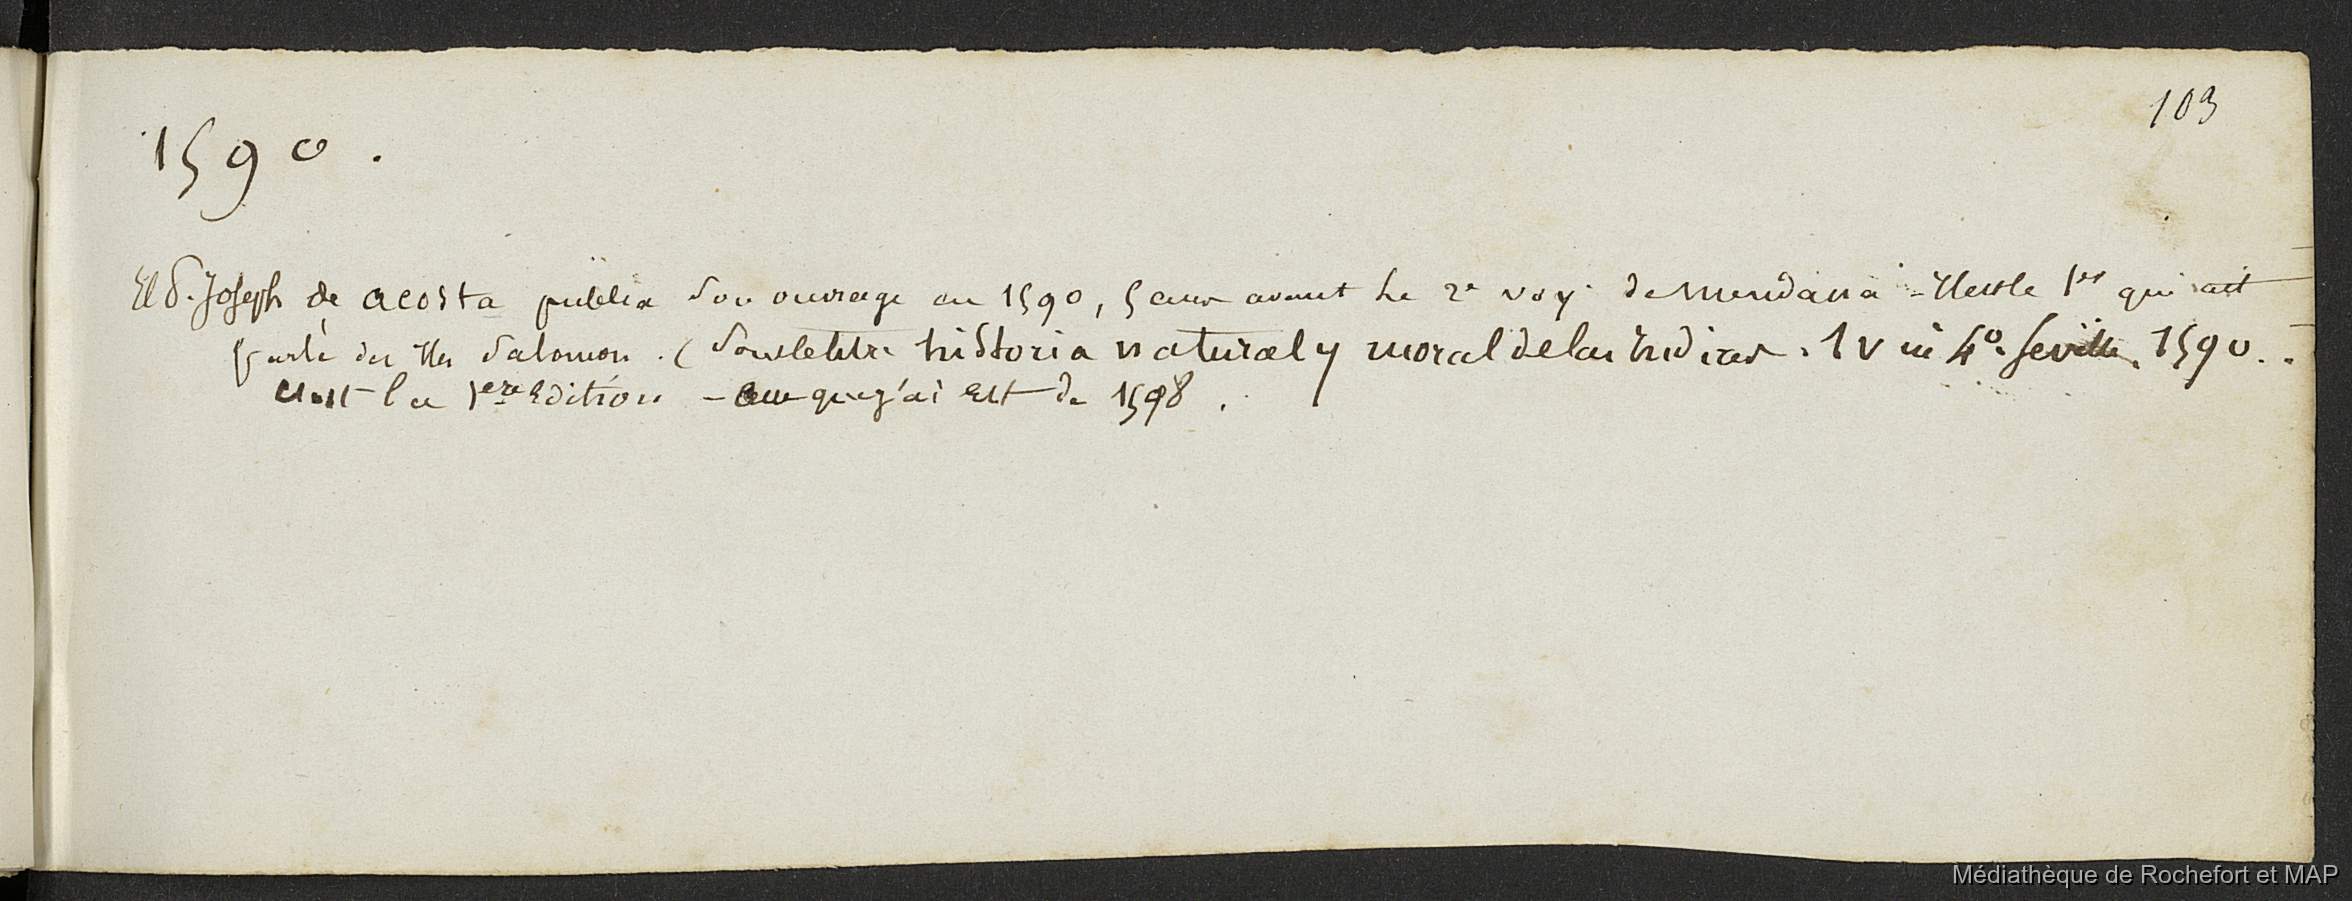 103
1590.
El d. Joseph de acosta publia son ouvrage en 1590, 5 ans avant le 2e voy. de Mendana - Il est le 1er qui ait
parlé des Iles Salomon. (Sous le titre historia natural y moral de las Indias. 1 v in 4o. Seville. 1590..
C'est la 1ere Edition - que j'ai est de 1598.
Médiathèque de Rochefort et MAP